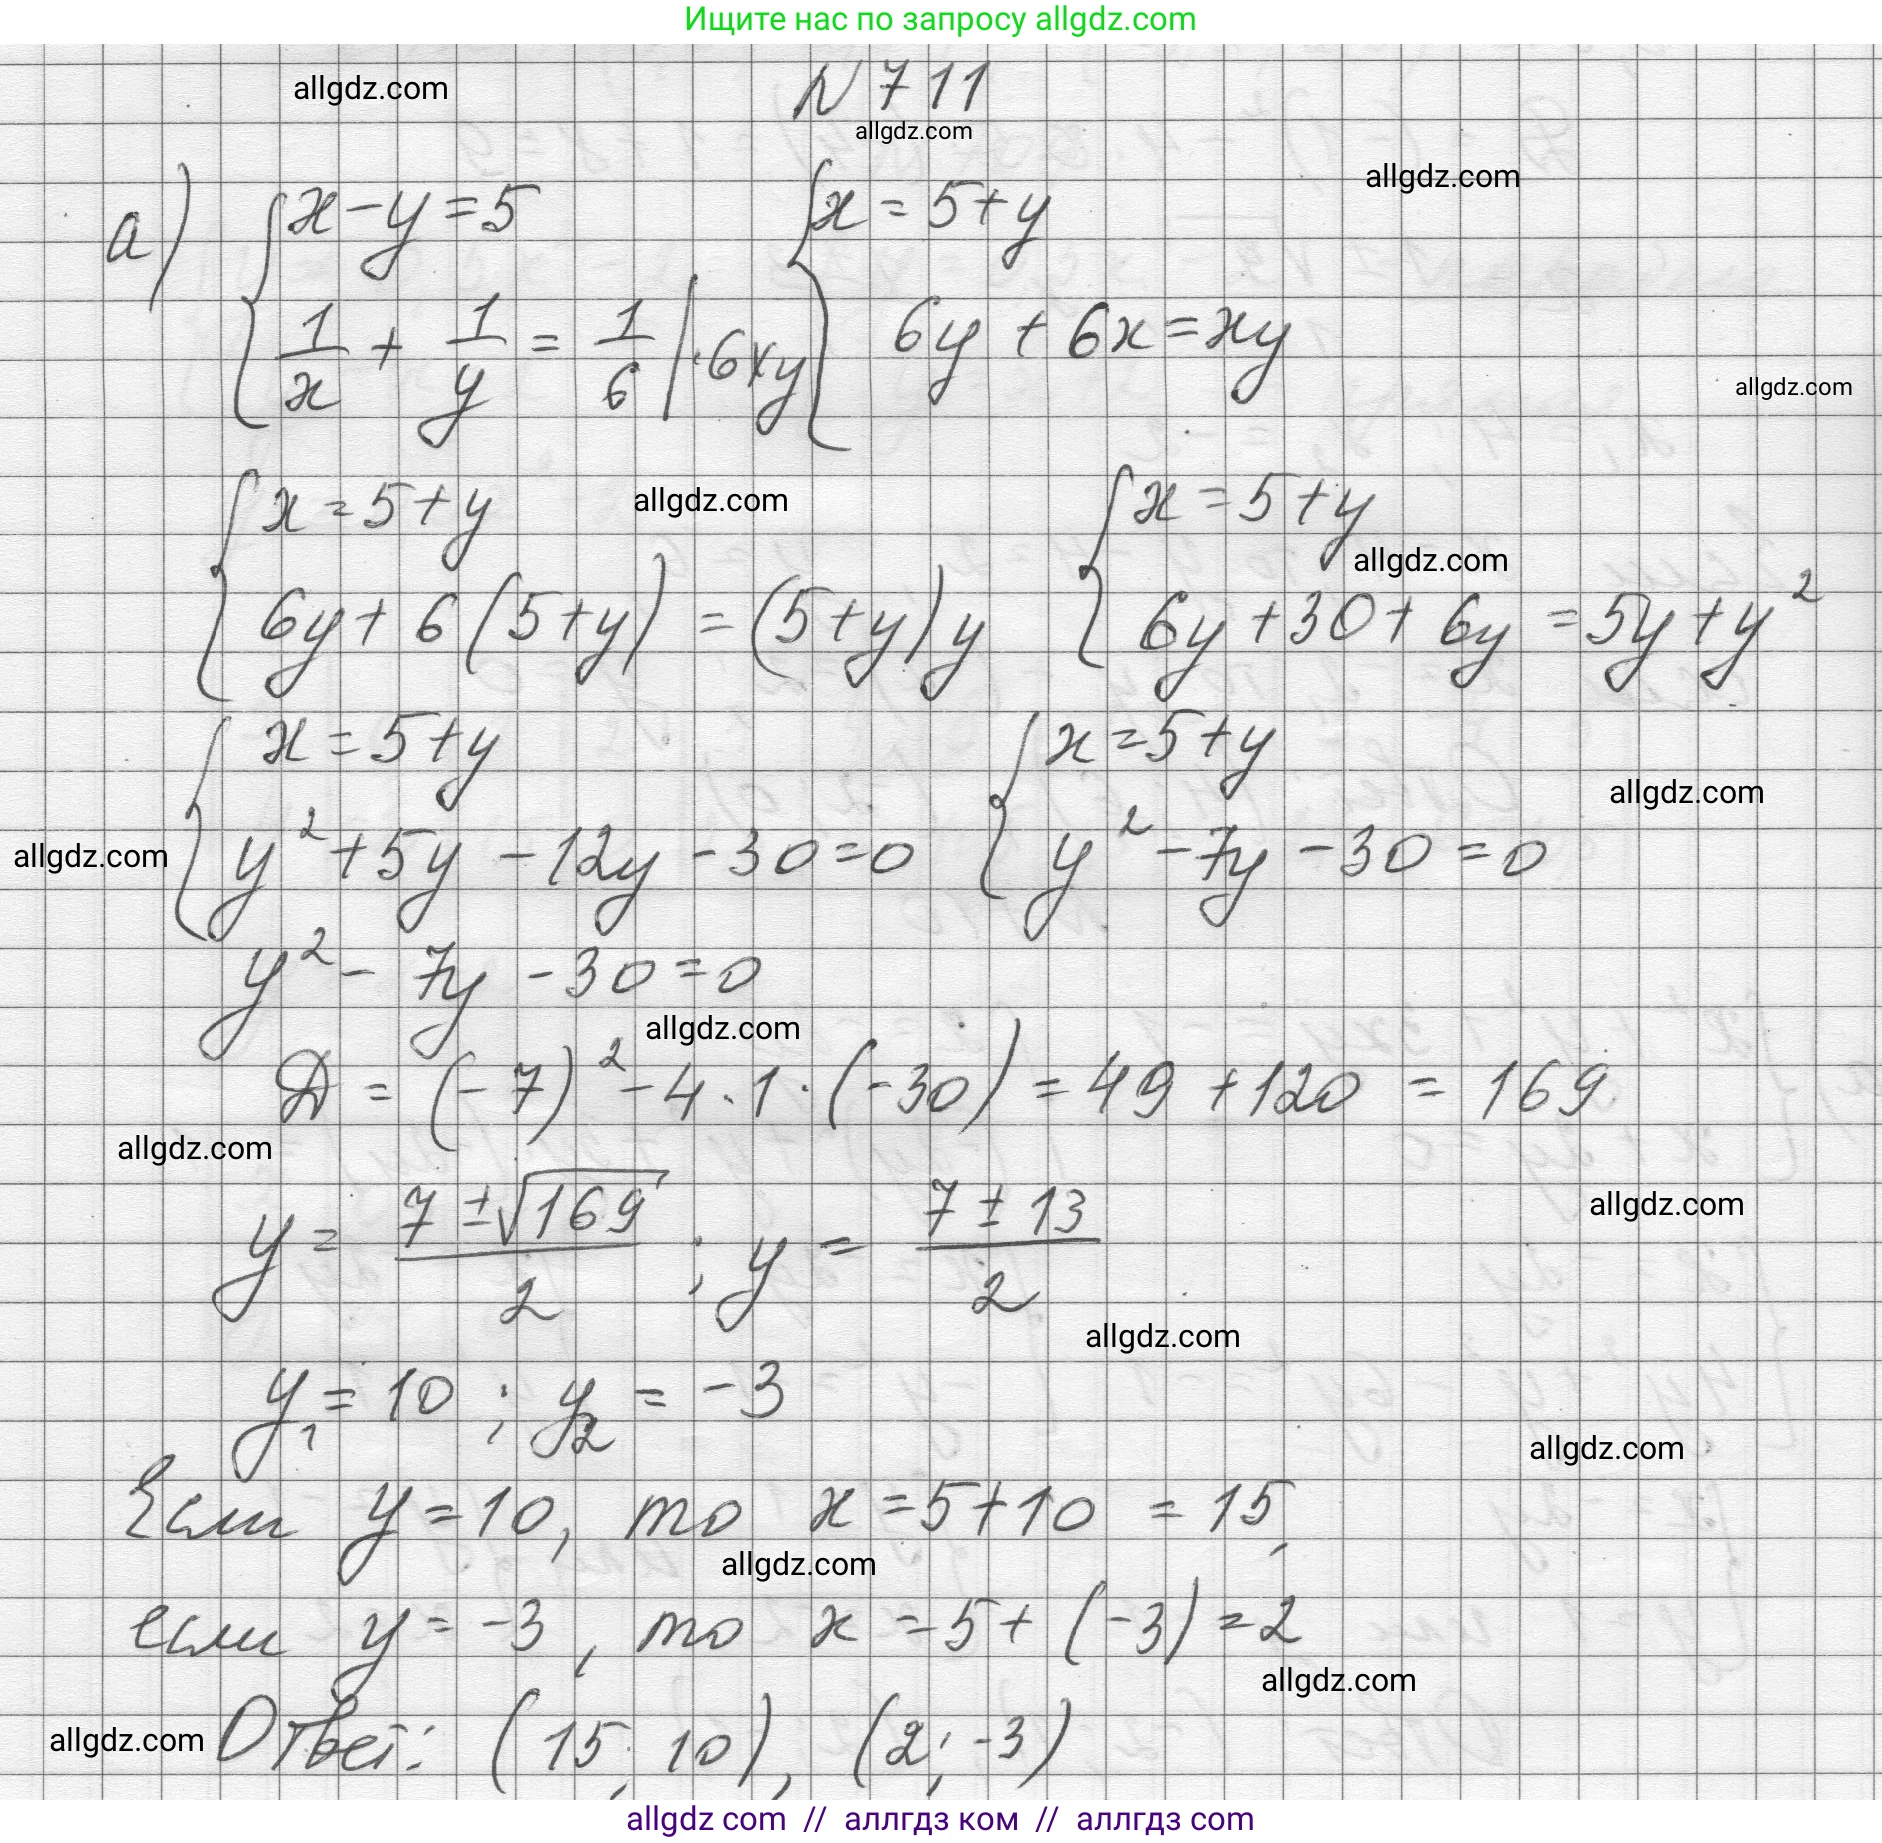 Ищите нас по запросу allgdz.com
allgdz.com
N 711
allgdz.com
allgdz.com
а) { x - y = 5 { x = 5 + y
1/x + 1/y = 1/6 | · 6xy 6y + 6x = xy
allgdz.com
{ x = 5 + y allgdz.com { x = 5 + y
allgdz.com
6y + 6(5 + y) = (5 + y)y 6y + 30 + 6y = 5y + y²
{ x = 5 + y { x = 5 + y
allgdz.com
allgdz.com y² + 5y - 12y - 30 = 0 y² - 7y - 30 = 0
y² - 7y - 30 = 0
allgdz.com
Д = (-7)² - 4 · 1 · (-30) = 49 + 120 = 169
allgdz.com
y = (7 ± √169)/2 ; y = (7 ± 13)/2
allgdz.com
allgdz.com
y₁ = 10 ; y₂ = -3
allgdz.com
Если y = 10, то x = 5 + 10 = 15,
allgdz.com
если y = -3, то x = 5 + (-3) = 2
allgdz.com
allgdz.com Ответ: (15; 10), (2; -3)
allgdz com // аллгдз ком // аллгдз com